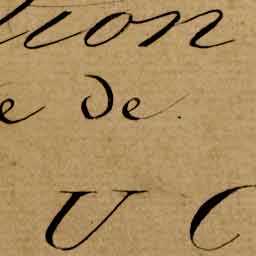 tion
e de
U C